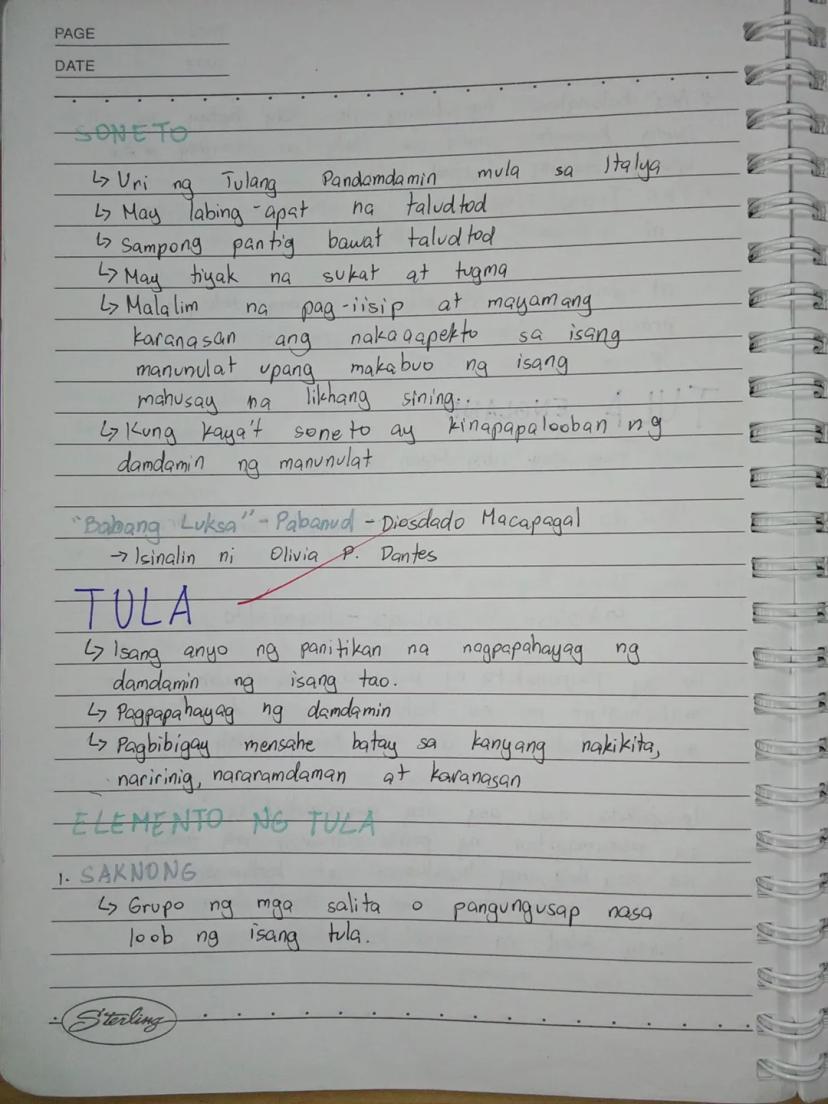 PAGE
DATE
SONETO
↳ Uri ng Tulang Pandamdamin mula sa Italya
↳ May labing-apat na taludtod
↳ Sampong pantig bawat taludtod
↳ May tiyak na sukat at tugma
↳ Malalim na pag-iisip at mayamang
karanasan ang nakaaapekto sa isang
manunulat upang makabuo ng isang
mahusay na likhang sining..
↳ Kung kaya't soneto ay kinapapalooban ng
damdamin ng manunulat
"Babang Luksa" - Pabanud - Diosdado Macapagal
→ Isinalin ni Olivia P. Dantes
TULA
↳ Isang anyo ng panitikan na nagpapahayag ng
damdamin ng isang tao.
↳ Pagpapahayag ng damdamin
↳ Pagbibigay mensahe batay sa kanyang nakikita,
naririnig, nararamdaman at karanasan
ELEMENTO NG TULA
1. SAKNONG
↳ Grupo ng mga salita o pangungusap nasa
loob ng isang tula.
Sterling